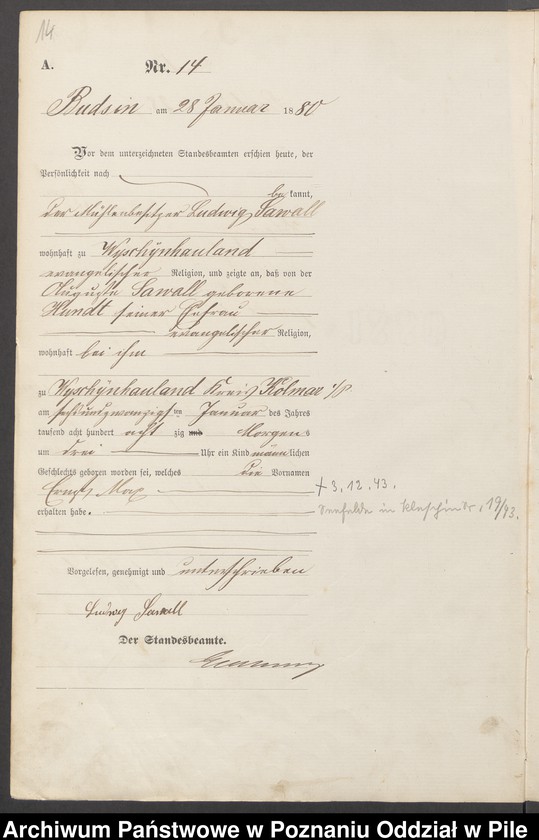 14
A. Nr. 14
Budsin am 28 Januar 1880
Vor dem unterzeichneten Standesbeamten erschien heute, der
Persönlichkeit nach
be kannt,
der Mühlenbesitzer Ludwig Sawall
wohnhaft zu Wyschynhauland
evangelischer Religion, und zeigte an, daß von der
Auguste Sawall geborene
Hundt seiner Ehefrau
evangelischer Religion,
wohnhaft bei ihm
zu Wyschynhauland Kreis Kolmar i/P
am sechsundzwanzigsten Januar des Jahres
tausend acht hundert acht zig und Morgens
um drei Uhr ein Kind männlichen
Geschlechts geboren worden sei, welches die Vornamen
Ernst Max
+ 3.12.43.
erhalten habe.
in 19/43.
Vorgelesen, genehmigt und unterschrieben
Ludwig Sawall
Der Standesbeamte.
Archiwum Państwowe w Poznaniu Oddział w Pile